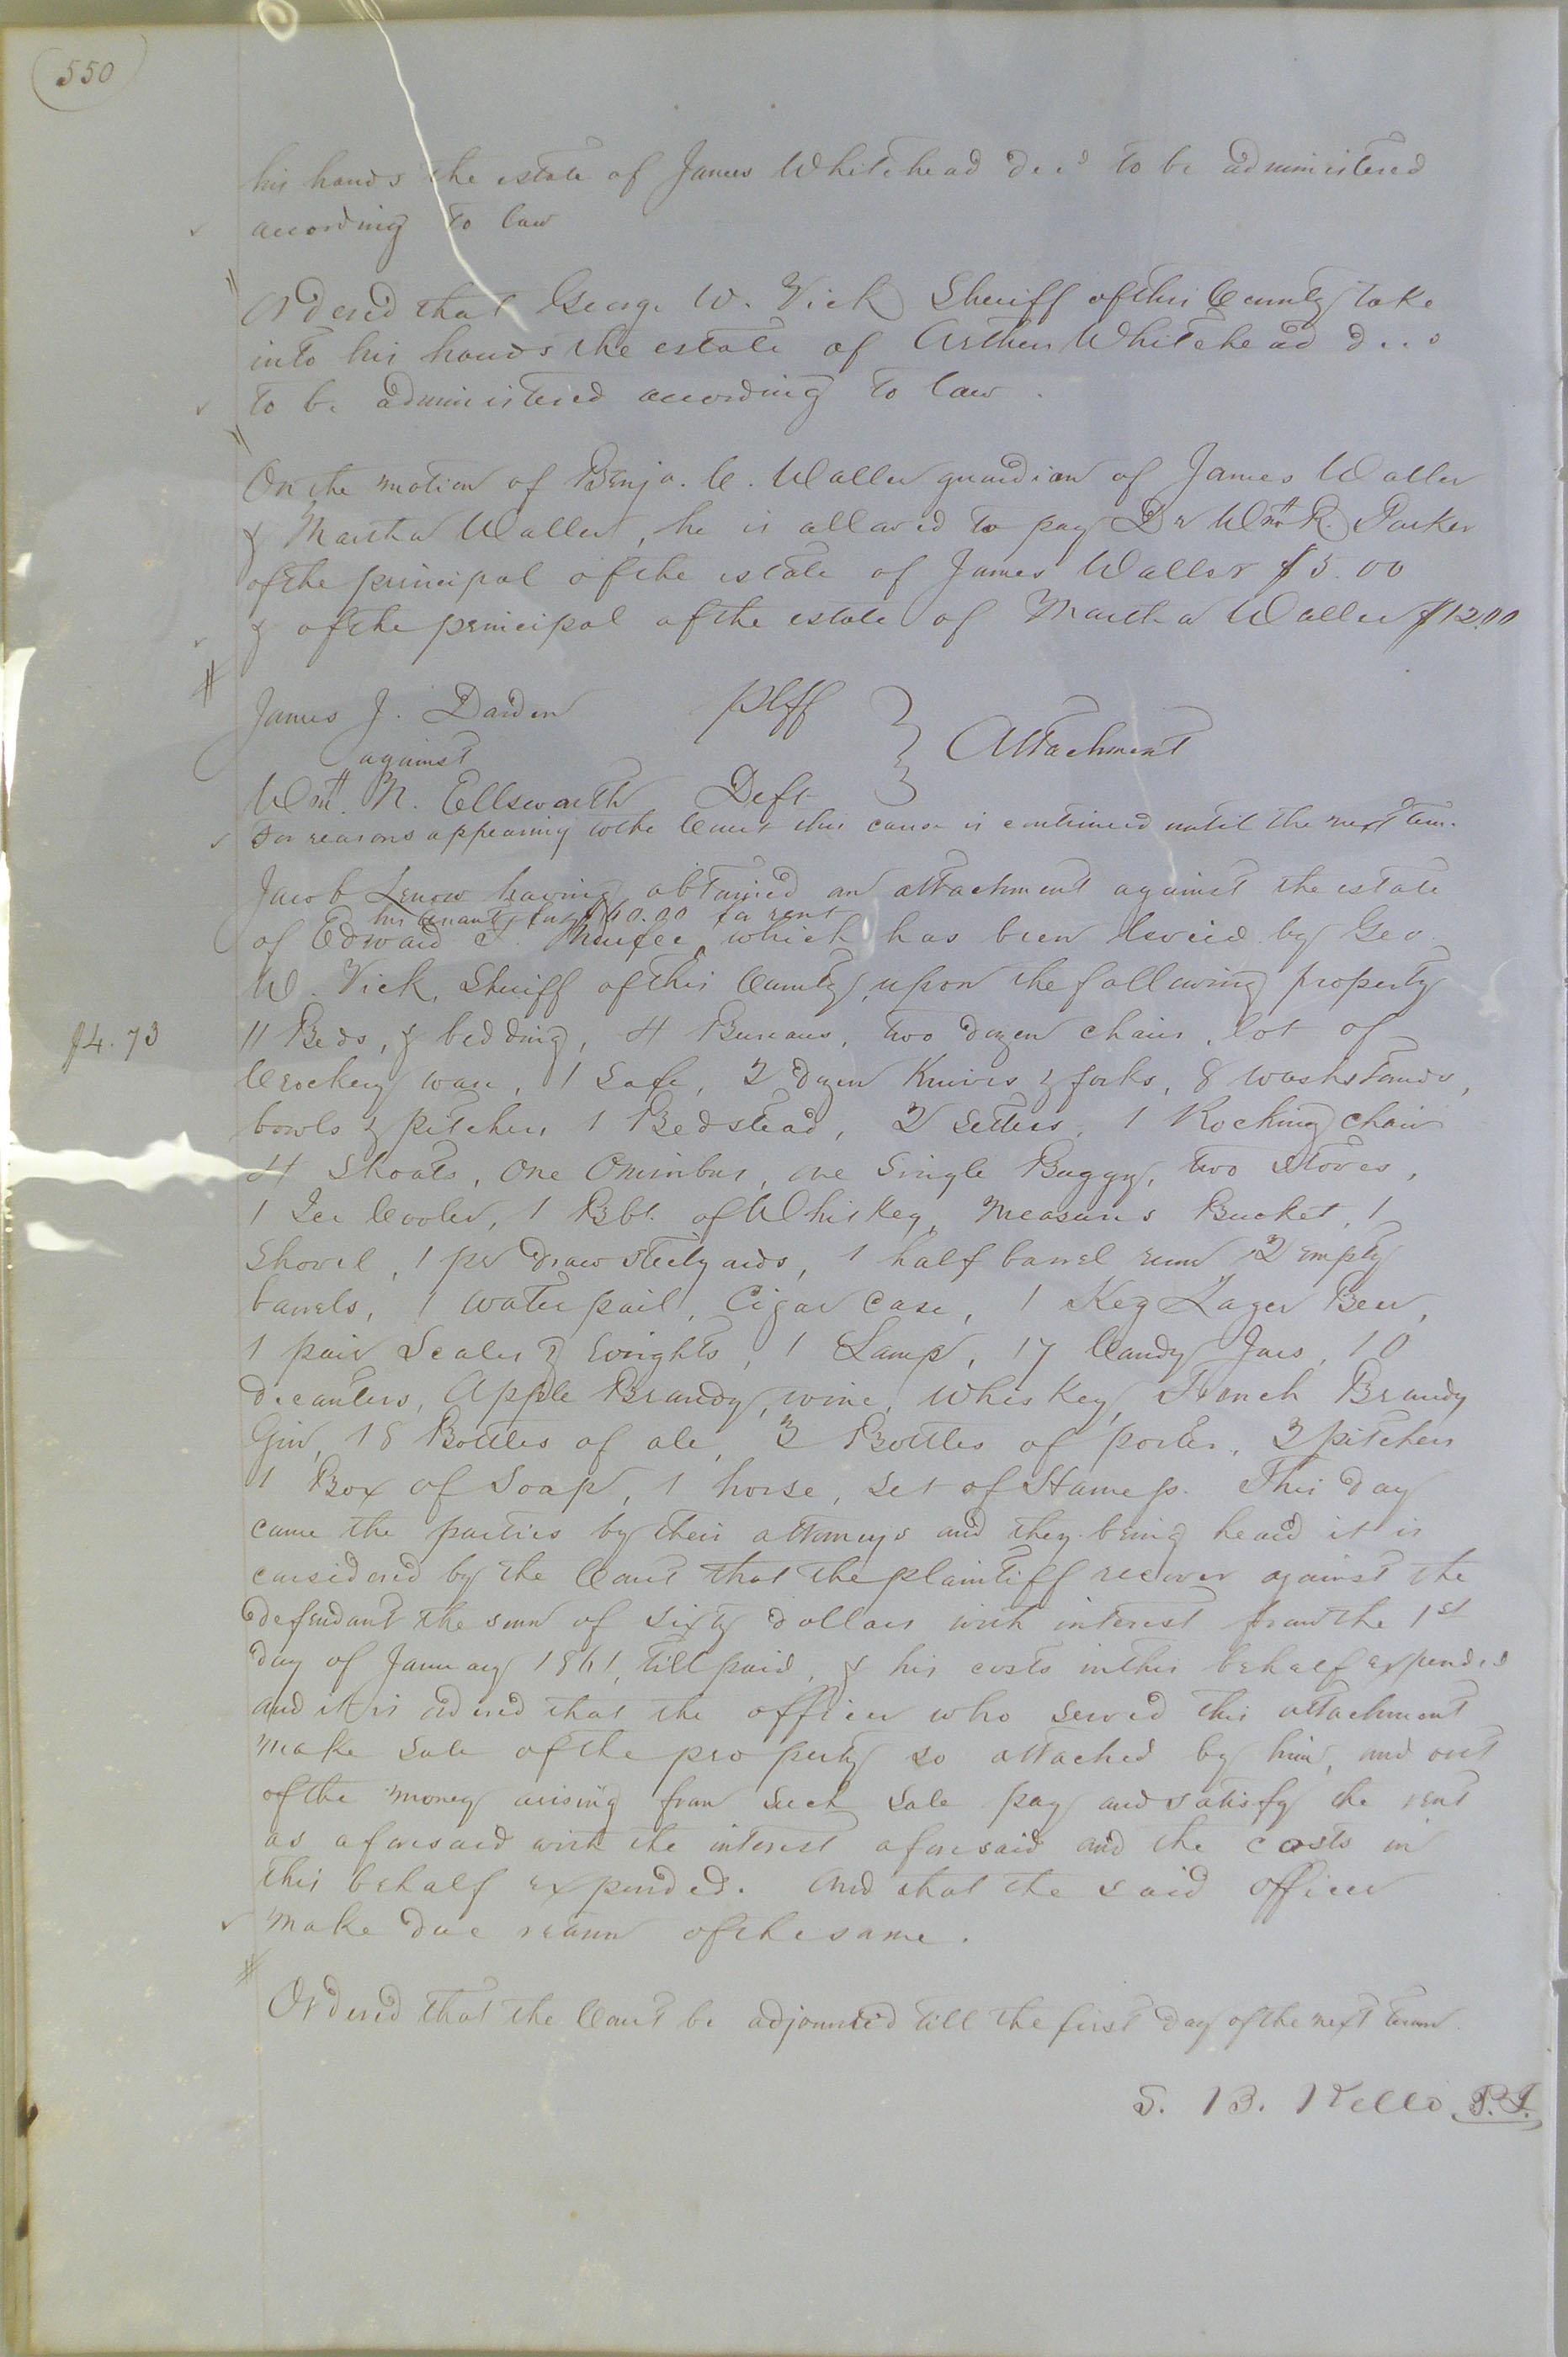 550
his hands the estate of James Whitehead decd to be administered
according to law
Ordered that George W. Vick Sheriff of this County take
into his hands the estate of Arthur Whitehead decd
to be administered according to law.
On the motion of Benja. C. Waller guardian of James Waller
& Martha Waller, he is allowed to pay Dr Wm R. Parker
of the principal of the estate of James Waller $5.00
& of the principal of the estate of Martha Waller $12.00
James J. Darden Plff
against } Attachment
Wm. N. Ellsworth Deft
For reasons appearing to the Court this cause is continued until the next term.
Jacob Lenow having obtained an attachment against the estate
his tenant, for $60.00 for rent
of Edward T. which has been levied by Geo
W. Vick, Sheriff of this County, upon the following property
$4.73
11 Beds, & bedding, 4 Bureaus, two dozen chairs, lot of
Crockery ware, 1 Safe, 2 dozen Knives & forks, 8 washstands,
bowls & pitchers 1 Bedstead, 2 Settees, 1 Rocking chair
4 Shoats, One Ominbus, one Single Buggy, two Stoves,
1 Ice Cooler, 1 Bbl. of Whiskey, Measures Bucket, 1
Shovel, 1 pr draw Steelyards, 1 half barrel rum 2 empty
barrels, 1 water pail, Cigar Case, 1 Keg Lager Beer,
1 pair Scales & weights, 1 Lamp, 17 Candy Jars, 10
decanters, Apple Brandy, wine, Whiskey, French Brandy
Gin, 18 Bottles of ale, 3 Bottles of porter, 2 pitchers
1 Box of Soap, 1 horse, set of Harness. This day
came the parties by their attorneys and they being heard it is
considered by the Court that the plaintiff recover against the
defendant the sum of Sixty dollars with interest from the 1st
day of January 1861, till paid, & his costs in this behalf expended
and it is ordered that the officer who served this attachment
make sale of the property so attached by him, and out
of the money arising from such sale pay and satisfy the rent
as aforesaid with the interest aforesaid and the costs in
this behalf expended. And that the said officer
make due return of the same.
Ordered that the Court be adjourned till the first day of the next term.
S. B. Kello P.J.